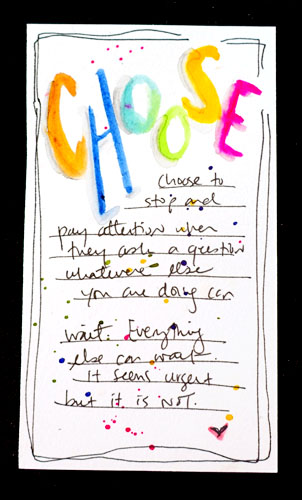 CHOOSE
choose to
stop and
pay attention when
they ask a question
whatever else
you are doing can
wait. Everything
else can wait.
It seems urgent
but it is NOT.